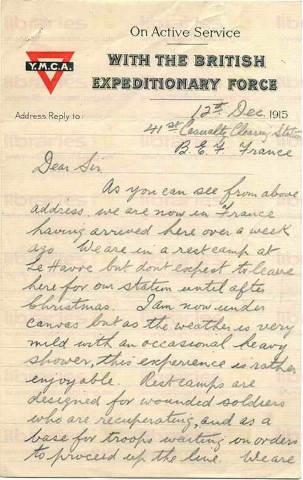 On Active Service
WITH THE BRITISH
EXPEDITIONARY FORCE
Y.M.C.A.
Address Reply to:
12th Dec. 1915
41st Casualty Clearing Station
B.E.F. France
Dear Sir,
As you can see from above
address, we are now in France
having arrived here over a week
ago. We are in a rest camp at
Le Havre but dont expect to leave
here for our station until after
Christmas. I am now under
canvas but as the weather is very
mild with an occasional heavy
shower, this experience is rather
enjoyable. Rest camps are
designed for wounded soldiers
who are recuperating, and as a
base for troops waiting on orders
to proceed up the line. We are